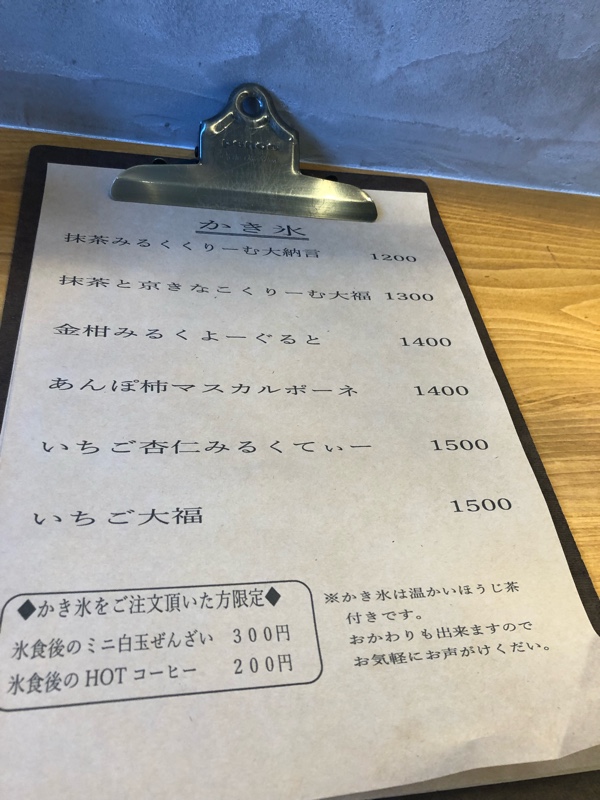 かき氷
抹茶みるくくりーむ大納言 1200
抹茶と京きなこくりーむ大福 1300
金柑みるくよーぐると 1400
あんぽ柿マスカルポーネ 1400
いちご杏仁みるくてぃー 1500
いちご大福 1500
◆かき氷をご注文頂いた方限定◆
氷食後のミニ白玉ぜんざい 300円
氷食後のHOTコーヒー 200円
※かき氷は温かいほうじ茶
付きです。
おかわりも出来ますので
お気軽にお声がけくだい。